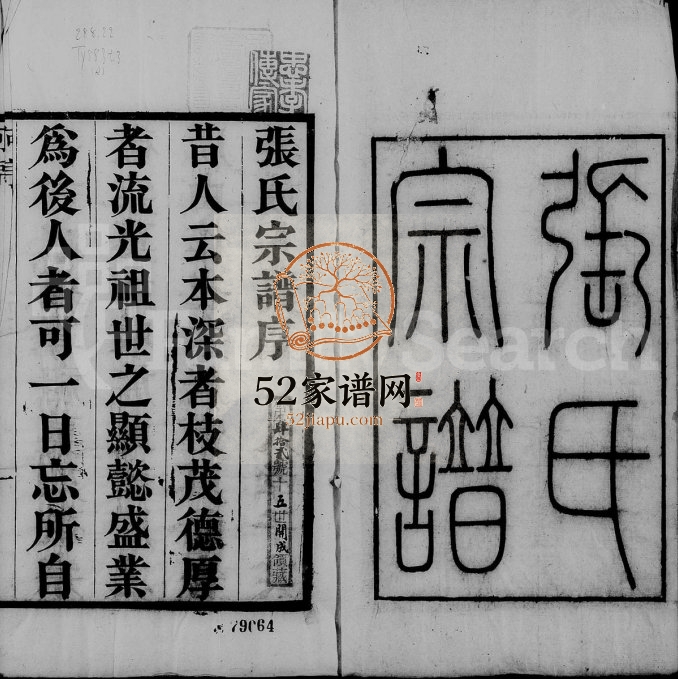 張氏
宗譜
張氏宗譜序
昔人云本深者枝茂德厚
者流光祖世之顯懿盛業
爲後人者可一日忘所自
忠孝
傳家
五世開成
52家谱网
52jiapu.com
Search
79064